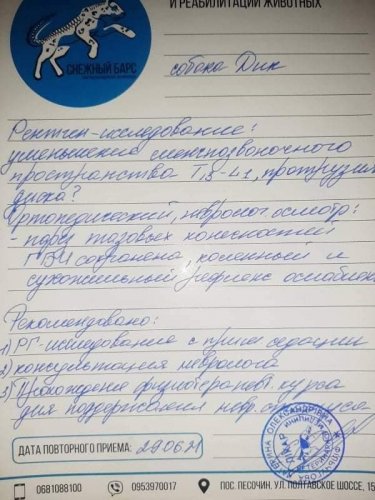 И РЕАБИЛИТАЦИИ ЖИВОТНЫХ
СНЕЖНЫЙ БАРС
собака Дик
Рентген-исследование:
уменьшение межпозвоночного
пространства T13-L1, протрузия
диска?
Ортопедический, осмотр:
- тазовых конечностей
ГБЧ сохранена, коленный и
сухожильный рефлекс ослаблен
Рекомендовано:
1) РГ-исследование с седации
2) консультация невролога
3) Прохождение курса
для поддержания
ДАТА ПОВТОРНОГО ПРИЕМА: 29.06.21
0681088100 0953970017 ПОС. ПЕСОЧИН, УЛ. ПОЛТАВСКОЕ ШОССЕ, 15